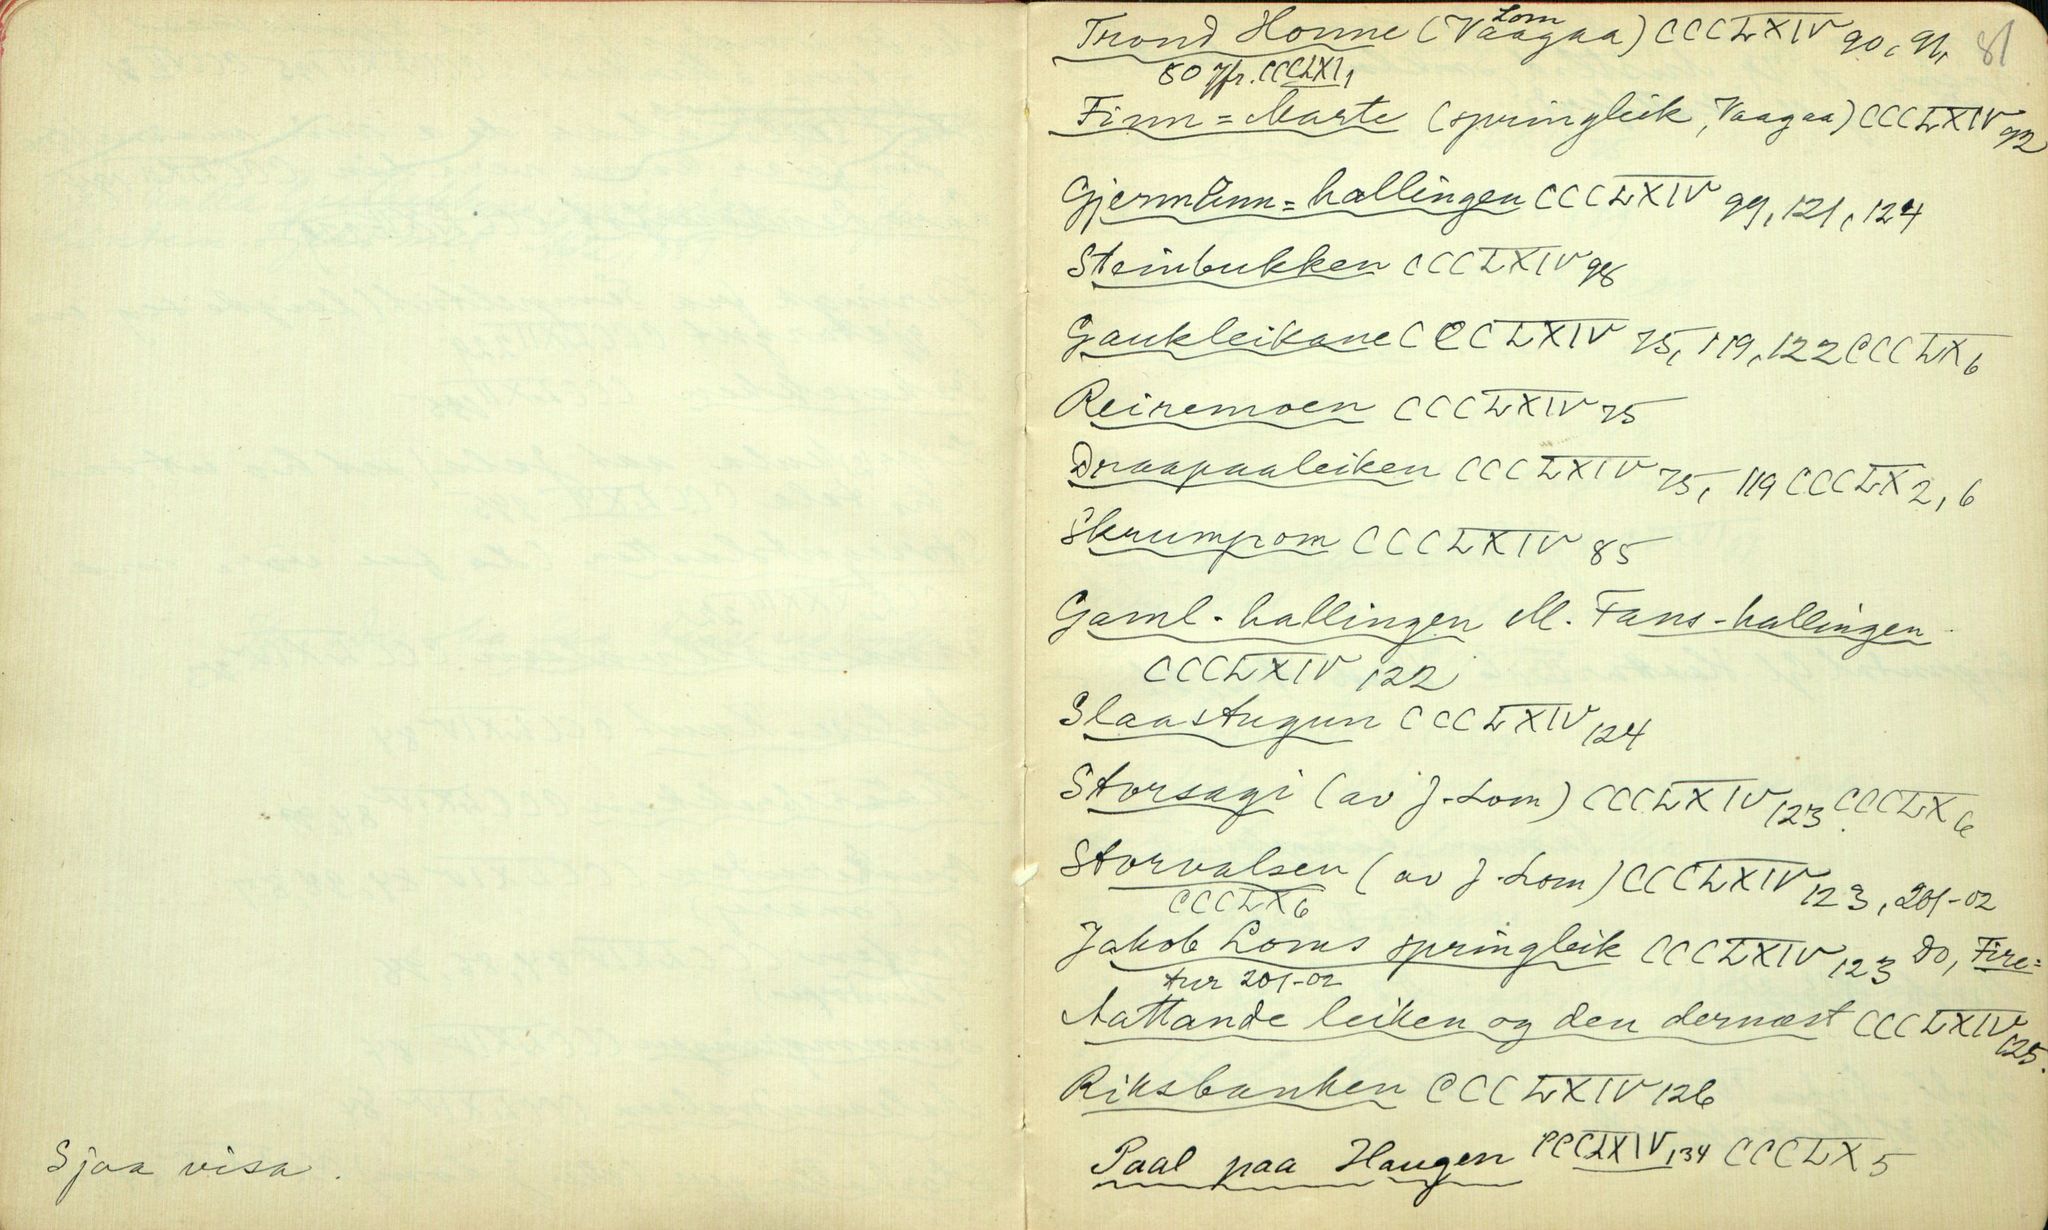 Sjaa visa.
81
Lom
Trond Honne (Vaagaa) CCCLXIV 90, 91,
50 Jfr. CCCLXI,
Finn=Marte (springleik, Vaagaa) CCCLXIV 92
Gjermunn=hallingen CCCLXIV 99, 121, 124
Steinbukken CCCLXIV 98
Gaukleikane CCCLXIV 75, 119, 122 CCCLX 6
Reiremoen CCCLXIV 75
Draapaaleiken CCCLXIV 75, 119 CCCLX 2, 6
Skrumpom CCCLXIV 85
Gaml-hallingen el. Fans-hallingen
CCCLXIV 122
Slaastugun CCCLXIV 124
Storsagi (av J. Lom) CCCLXIV 123 CCCLX 6
Storvalsen (av J. Lom) CCCLXIV 123, 201-02
CCCLX 6
Jakob Loms springleik CCCLXIV 123 Do, Fire=
tur 201-02
Nattande leiken og den dernæst CCCLXIV 125.
Riksbanken CCCLXIV 126
Paal paa Haugen CCCLXIV, 134 CCCLX 5